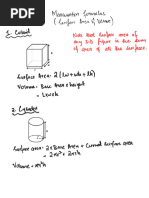 Mensuration formulas
(Surface Area & Volume)
1. Cuboid
Note that surface area of
any 3-D figure is the sum
of area of all the surface.
Surface Area = 2(lw + wh + lh)
Volume = Base Area × height
= l×w×h
2. Cylinder
Surface area = 2×Base Area + Curved surface area
= 2πr² + 2πrh
Volume = πr²h